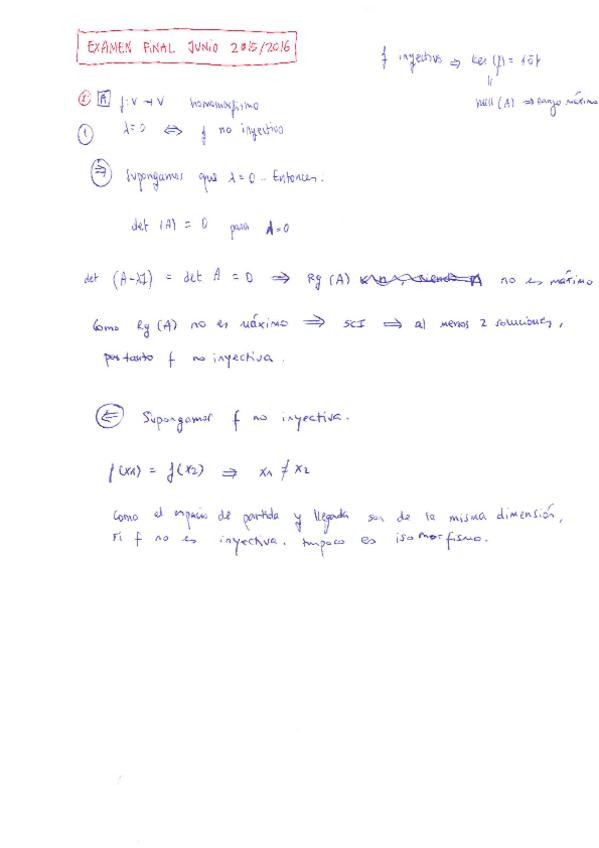 EXAMEN FINAL JUNIO 2015/2016
f inyectiva ⇒ Ker (f) = {0}
null (A) ⇒ rango máximo
A f: V → V homomorfismo
① λ=0 ⇔ f no inyectivo
⇒ Supongamos que λ=0. Entonces:
det (A) = 0 para λ=0
det (A-λI) = det A = 0 ⇒ Rg (A) no es máximo
Como Rg (A) no es máximo ⇒ SCI ⇒ al menos 2 soluciones,
por tanto f no inyectiva.
⇐ Supongamos f no inyectiva.
f(x1) = f(x2) ⇒ x1 ≠ x2
Como el espacio de partida y llegada son de la misma dimensión,
si f no es inyectiva. tampoco es isomorfismo.